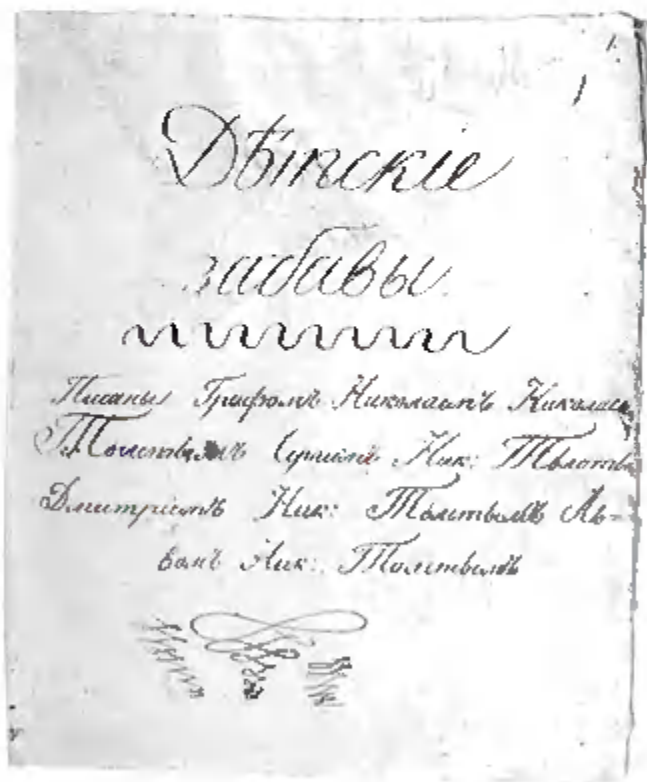 1.
1
Дѣтскіе
забавы.
Писаны Графомъ Николаемъ Николаев
Толстымъ Сергѣемъ Ник: Толсты
Дмитріемъ Ник: Толстымъ Ль=
вомъ Ник: Толстымъ